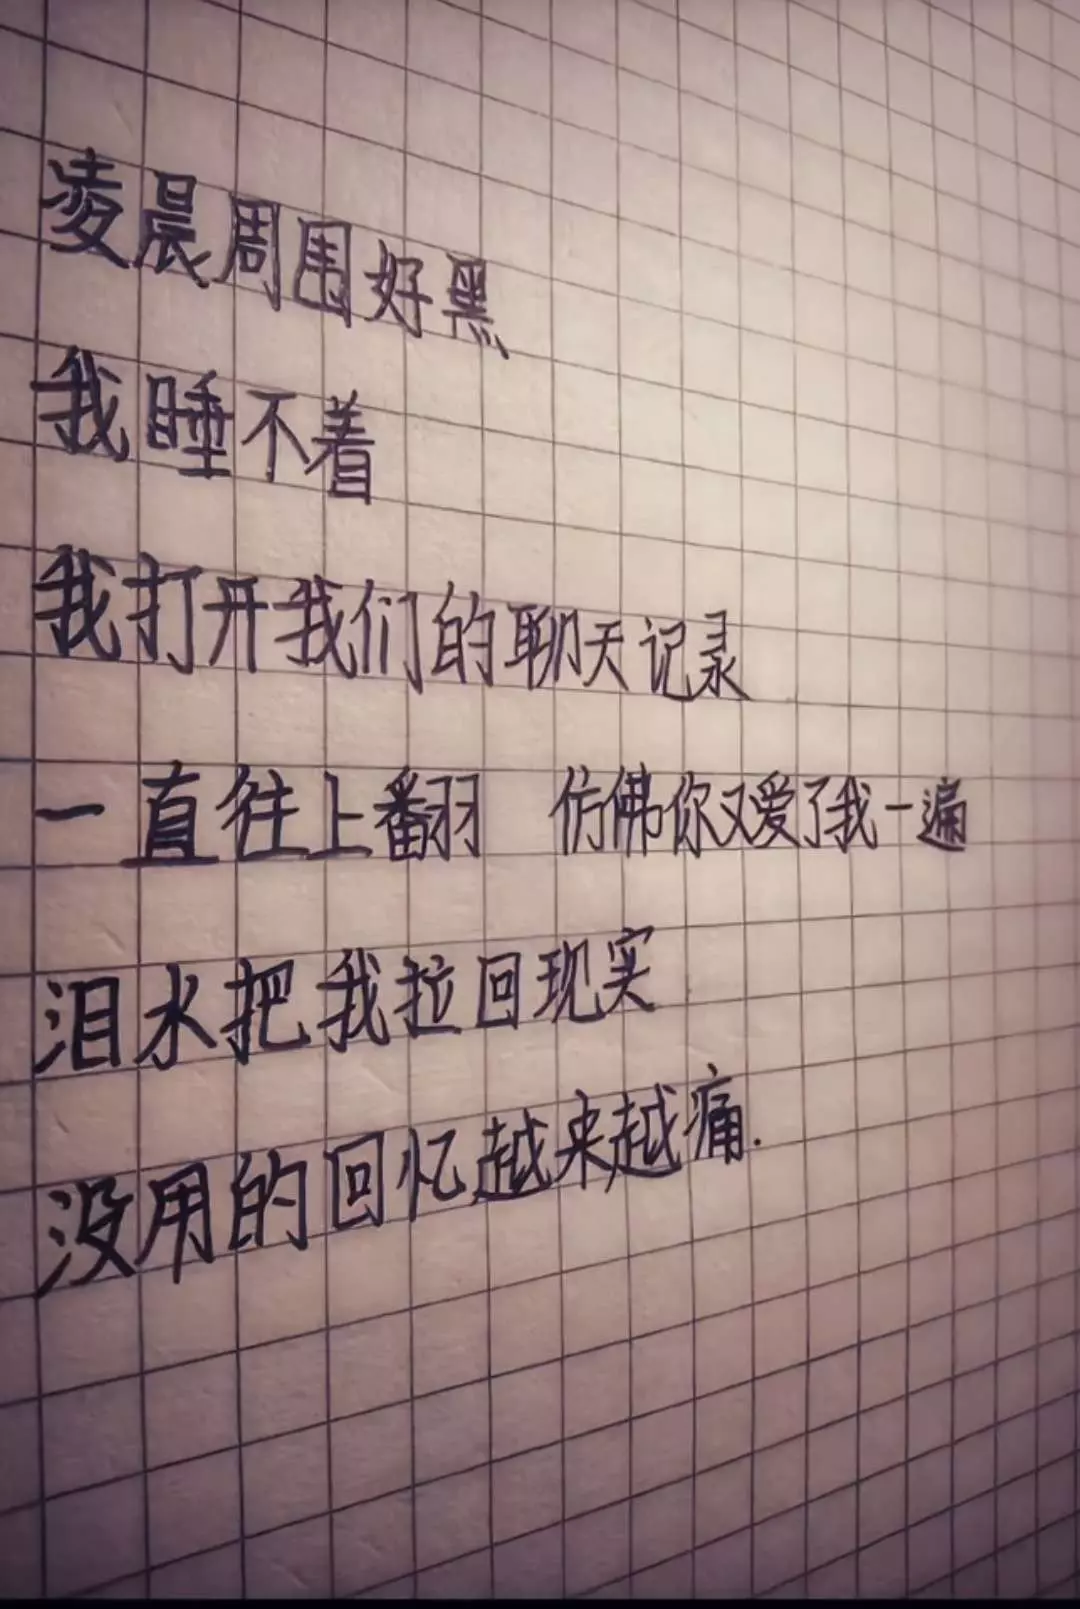 凌晨周围好黑
我睡不着
我打开我们的聊天记录
一直往上翻 仿佛你又爱了我一遍
泪水把我拉回现实
没用的回忆越来越痛.